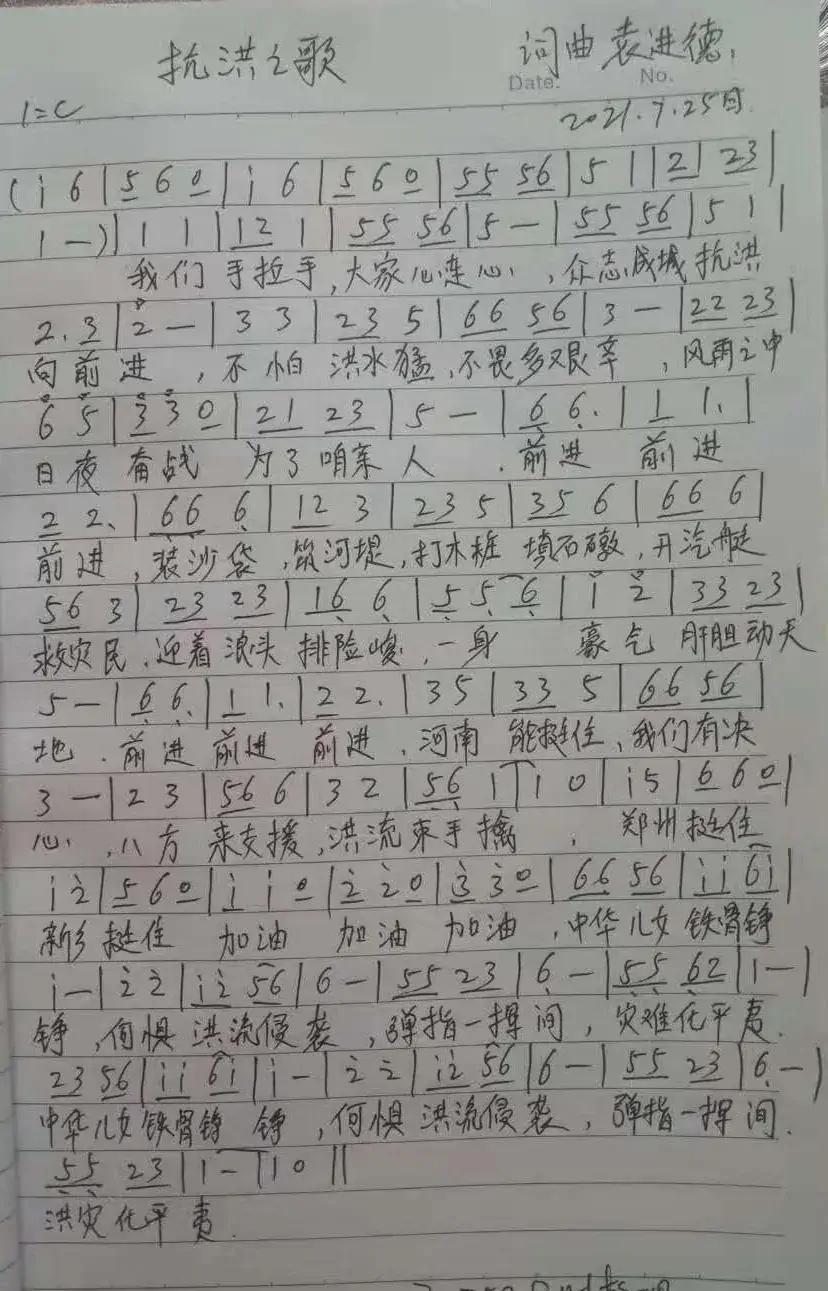 抗洪之歌 词曲 袁进德
Date. No.
1=C 2021.7.25日
(i 6 | 5 6 0 | i 6 | 5 6 0 | 55 56 | 5 1 | 2 | 23 |
1 —) | 1 1 | 12 1 | 55 56 | 5 — | 55 56 | 5 1 |
我们 手拉手,大家心连心,众志成城抗洪
2. 3 | 2 — | 3 3 | 23 5 | 66 56 | 3 — | 22 23 |
向前进,不怕 洪水猛,不畏多艰辛,风雨之中
6 5 | 3 3 0 | 21 23 | 5 — | 6 6. | 1 1. |
日夜 奋战 为了咱亲人.前进 前进
2 2. | 66 6 | 12 3 | 23 5 | 35 6 | 66 6 |
前进,装沙袋,筑河堤,打木桩 填石礅,开汽艇
56 3 | 23 23 | 16 6 | 5 5 6 | i 2 | 33 23 |
救灾民.迎着浪头 排险峻,一身 豪气 肝胆动天
5 — | 6 6. | 1 1. | 2 2. | 35 | 33 5 | 66 56 |
地.前进 前进 前进.河南 能挺住、我们有决
3 — | 2 3 | 56 6 | 3 2 | 56 1 | 1 0 | i5 | 6 6 0 |
心,八方 来支援,洪流束手擒,郑州挺住
i 2 | 5 6 0 | i i 0 | 2 2 0 | 3 3 0 | 66 56 | i i 6i |
新乡 挺住 加油 加油 加油,中华儿女 铁骨铮
i — | 2 2 | i2 56 | 6 — | 55 23 | 6 — | 55 62 | 1 — |
铮,何惧 洪流侵袭,弹指一挥间,灾难化平夷.
23 56 | i i 6i | i — | 2 2 | i2 56 | 6 — | 55 23 | 6. — )
中华儿女 铁骨铮 铮,何惧 洪流侵袭,弹指一挥间.
55 23 | 1 — | 1 0 ||
洪灾化平夷.